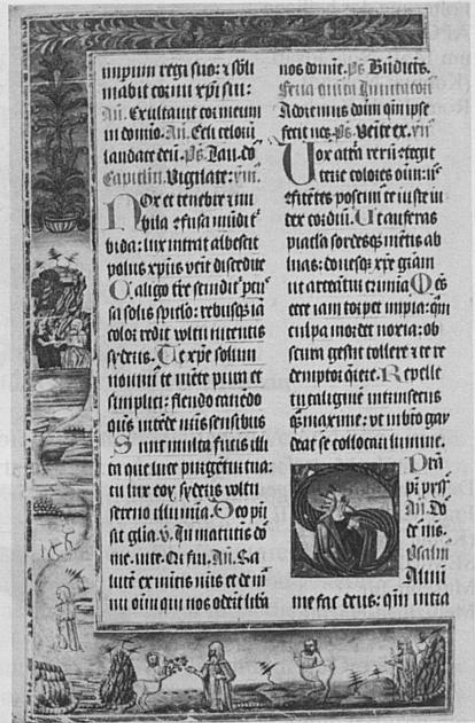 imperium regi suo: et subli
mabit cornu xpi sui:
An. Exultauit cor meum
in domino. An. Celi celorū
laudate deū. Ps Lau. dō
Capitlm. Vigilate: viii.
Nox et tenebre et nu
bila
bida: lux intrat albescit
polus xpus venit discedite
Caligo
sa solis spiclo: rebusq; iā
color redit vultu nitentis
syderis. Te xpe solum
nouim te mēte pura et
simplici: flendo canēdo
quis intēde nris sensibus
Sunt multa fucis illi
ta que luce purgētur tua:
tu lux eoy syderis vultu
sereno illumina. Deo pri
sit glia. v. In matutis do
me. ute. Qi fui. An. Sa
lutē ex
nu oim qui nos oderūt libā
nos domie. ps Bndictꝰ.
Feria quita Inuitatori
Adoremus dom qm ipse
fecit nos. Ps. Veite ex. vii
Uox atra rerū
terre colores oim:
fitētes poscim te iuste iu
dex cordiū. Ut auferas
piacla sordesq; mētis ab
luas: donesq; xpe grām
ut arceātur crimina. Mēs
ecce iam torpet impia: qm
culpa mordet noxia: ob
scura gestit tollere et te re
demptor qrere. Repelle
tu caliginē intrinsecus
q maxime: ut in bto gau
deat se collocari lumine.
An. Do
Psalm
Saluū
me fac deus: qm intra